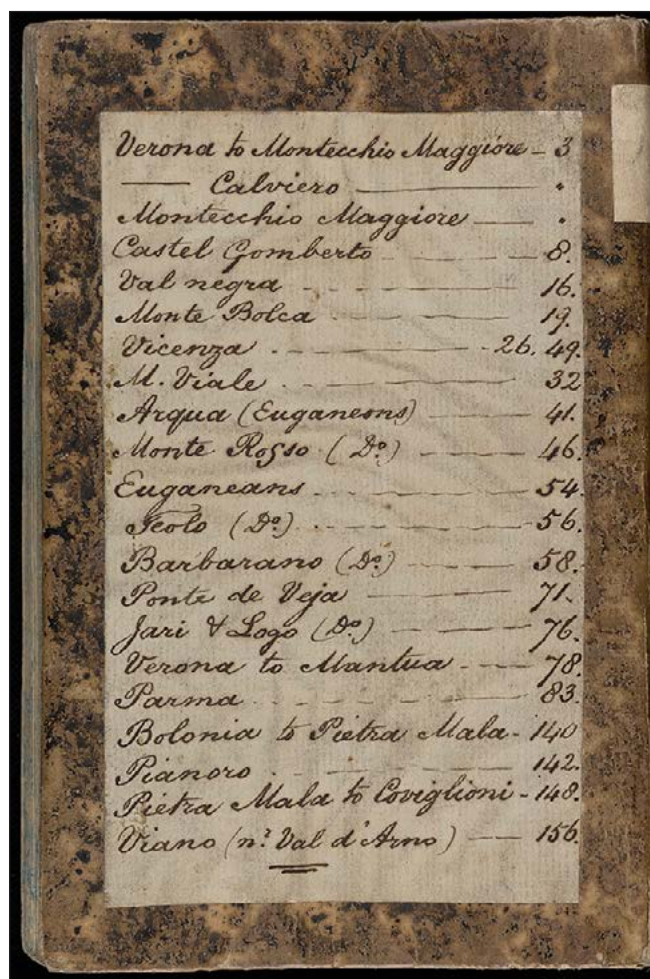 Verona to Montecchio Maggiore - 3
—— Calviero ———— "
Montecchio Maggiore —— "
Castel Gomberto - - - — 8.
Val negra - - - - — 16.
Monte Bolca — — — — 19.
Vicenza . — — — - 26. 49.
M. Viale . - — — — 32
Arqua (Euganeons) ——— 41.
Monte Rosso (Do.) - — — — 46.
Euganeans - - - — — — 54.
Teolo (Do.) - - - — — — 56.
Barbarano (Do.) - — — 58.
Ponte de Veja ——— 71.
Jari & Logo (Do.) - — — — 76.
Verona to Mantua - - — 78.
Parma - - - - — — 83.
Bolonia to Pietra Mala - 140
Pianoro . - — — — 142.
Pietra Mala to Coviglioni - 148.
Viano (nr. Val d'Arno) —— 156.